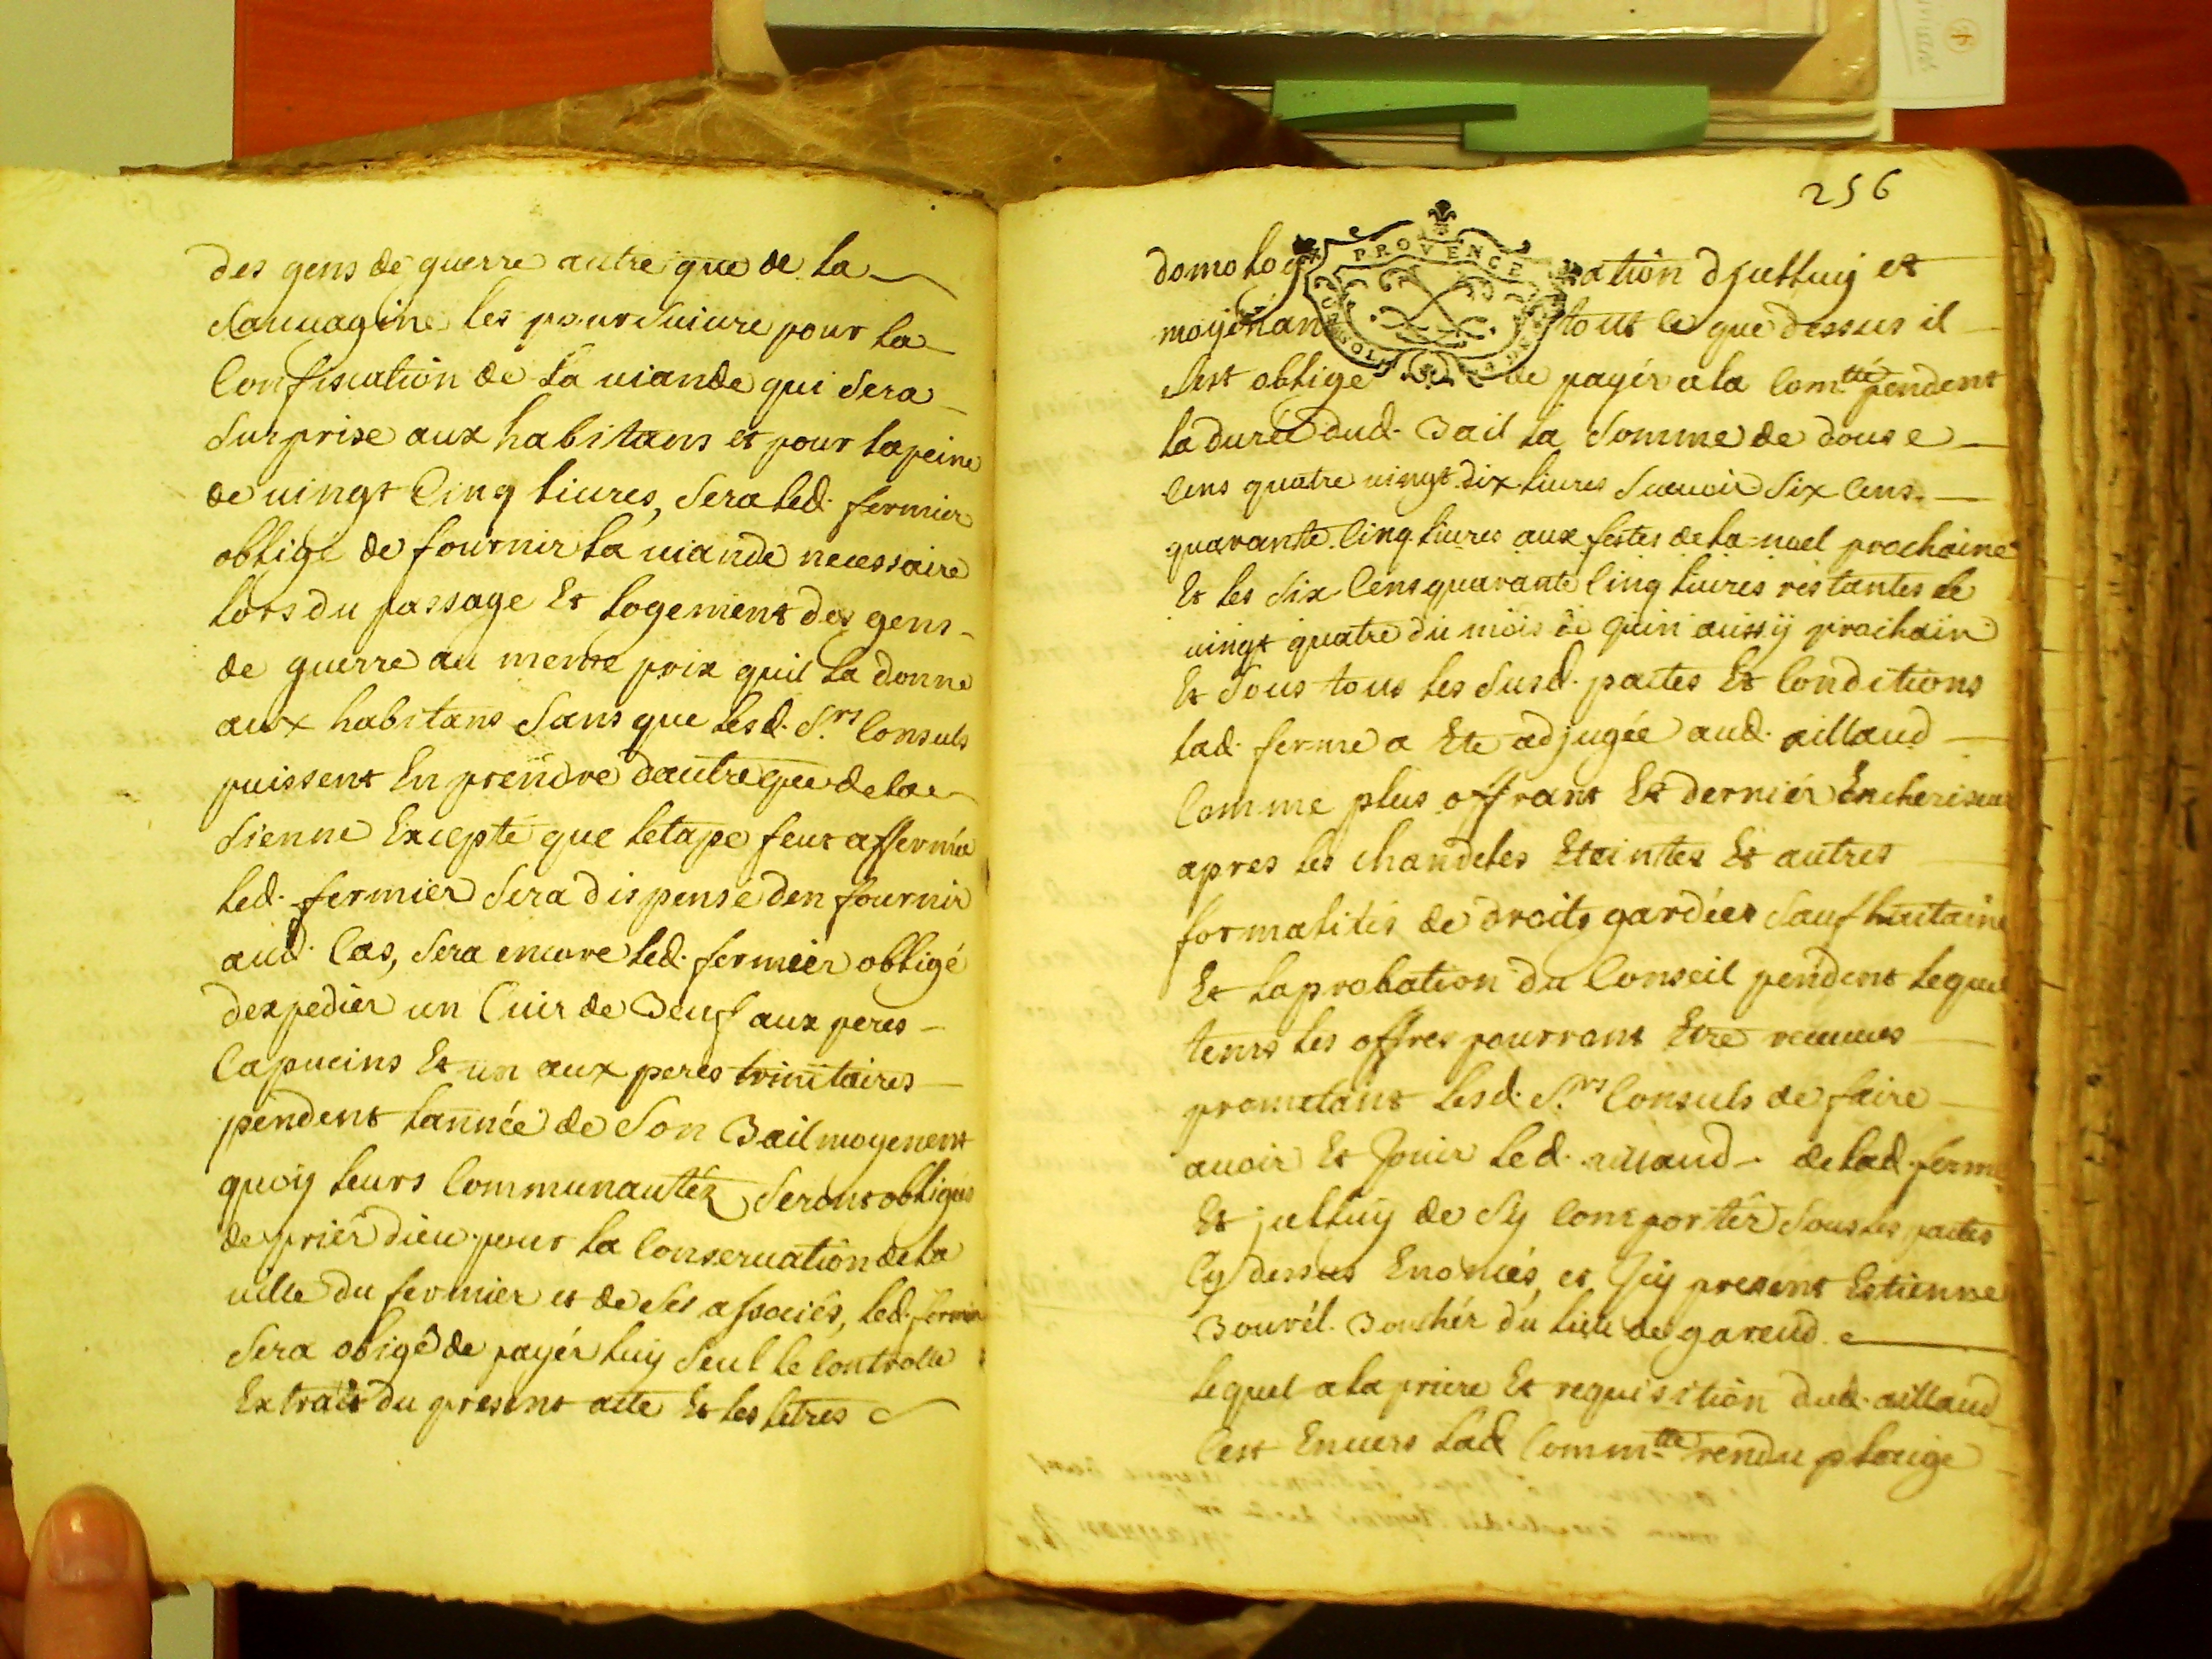 des gens de guerre autre que de la
Sauuagine les poursuiure pour la
Confiscation de la uiande qui Sera
Surprise aux habitans et pour la peine
de uingt Cinq liures, Sera led. fermier
obligé de fournir la uiande necessaire
lors du passage Et logement des gens
de guerre au meme prix quil la donne
aux habitans Sans que lesd. S.rs Consuls
puissent En prendre dautre que de la
Sienne Excepté que letape feut affermée
led. fermier Sera dispensé den fournir
aud. Cas, Sera encore led. fermier obligé
dexpedier un Cuir de Beuf aux peres
Capucins Et un aux peres trinitaires
pendent lannée de Son Bail moyenent
quoy leurs Communautéz Seront obligés
de priér dieu pour la Conseruation de la
uille du fermier et de Ses associés, led. fermier
Sera obigé de payér luy Seul le Controlle
Extrait du present acte Et les letres
256
PROVENCE
domolog ation djcelluy et
moyenan tout ce que dessus il
Sest obligé de payér a la Com.tté pendent
la durée dud. Bail la Somme de douse
Cens quatre uingt dix liures Scauoir Six Cens
quarante Cinq liures aux festes de la noel prochaine
Et les Six Cens quarante Cinq liures restantes le
uingt quatre du mois de juin aussy prochain
Et Sous tous les Susd. pactes Et Conditions
lad. ferme a Ete adjugée aud. aillaud
Comme plus offrant Et derniér Encheriseur
apres les chandeles Eteintes Et autres
formalités de droits gardées Sauf huitaine
Et laprobation du Conseil pendent lequel
tems les offres pourront Etre receues
prometant lesd. S.rs Consuls de faire
auoir Et Jouir led. aillaud de lad. ferme
Et jcelluy de Sy Comportér Sous les pactes
Cy dessus Enoncés, et Jcy present Estienne
Bourél. Bouchér du lieu de gareud.
lequel a la priere Et requisition dud. aillaud
Cest Enuers lad. Comm.tté rendu pleuige